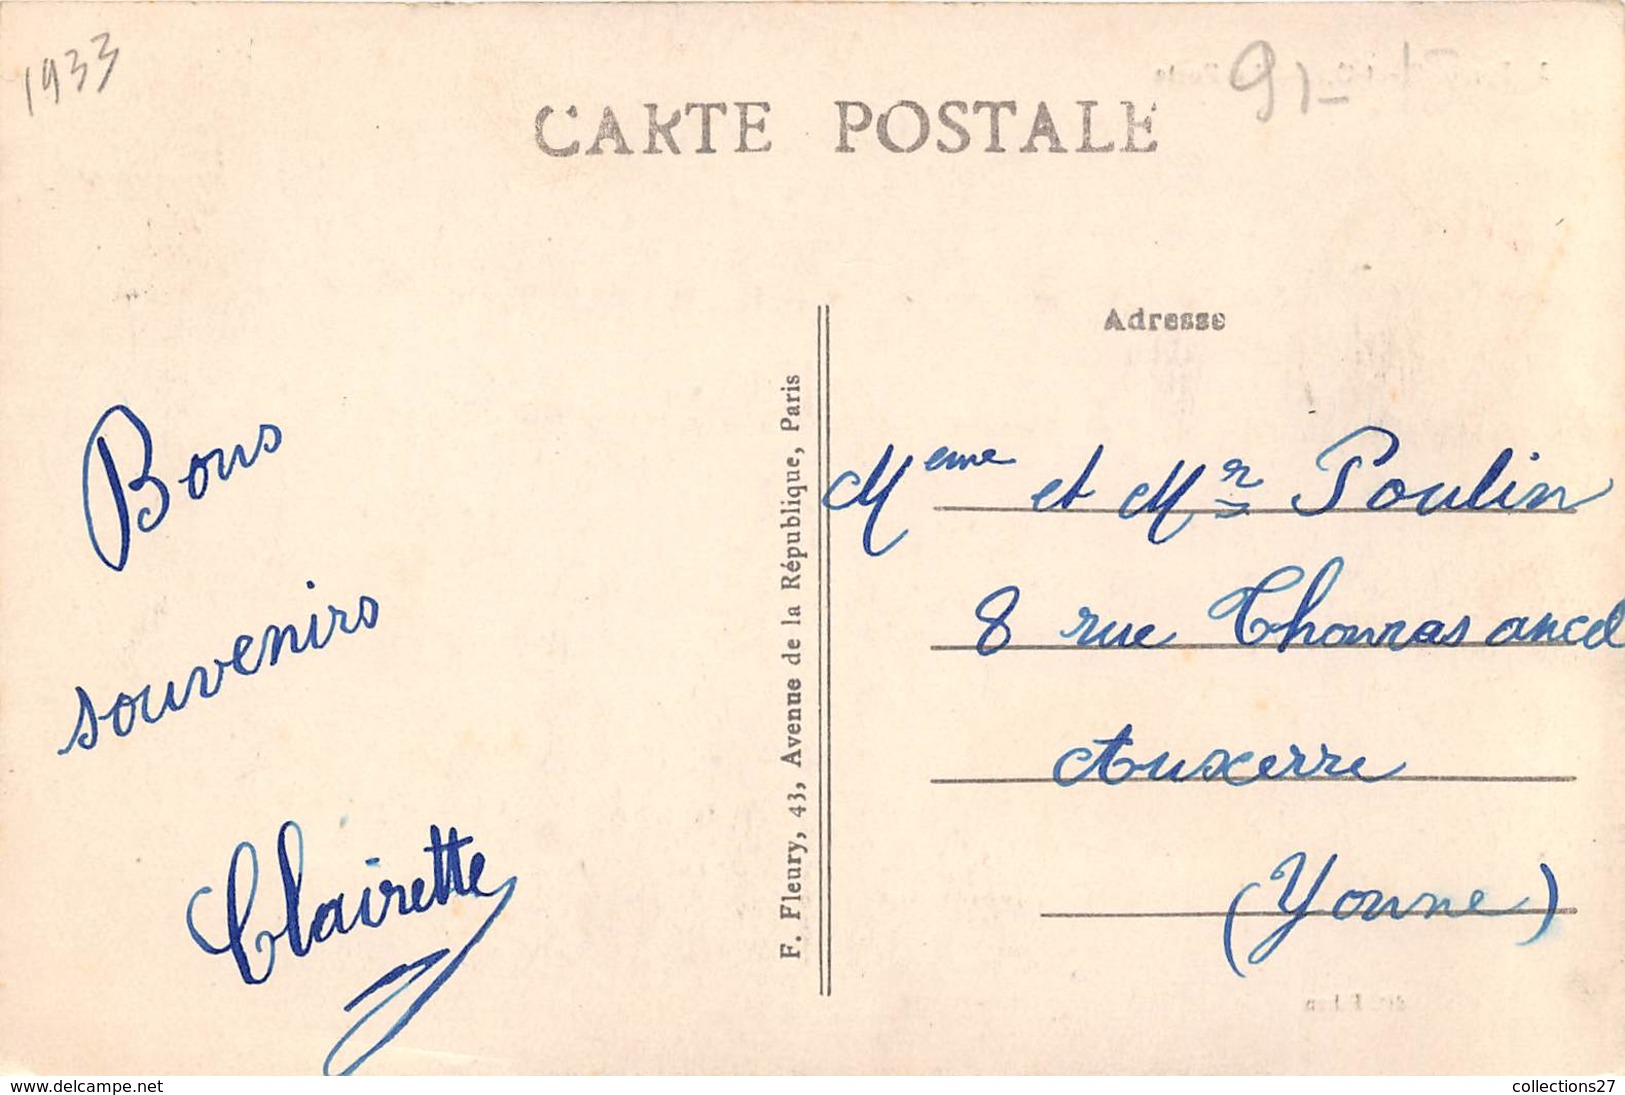 1933
91-
CARTE POSTALE
Adresse
Bons
souvenirs
Clairette
F. Fleury, 43, Avenue de la République, Paris
Meme et Mr Poulin
8 rue Thomas ancel
Auxerre
(Yonne)
www.delcampe.net
collections27